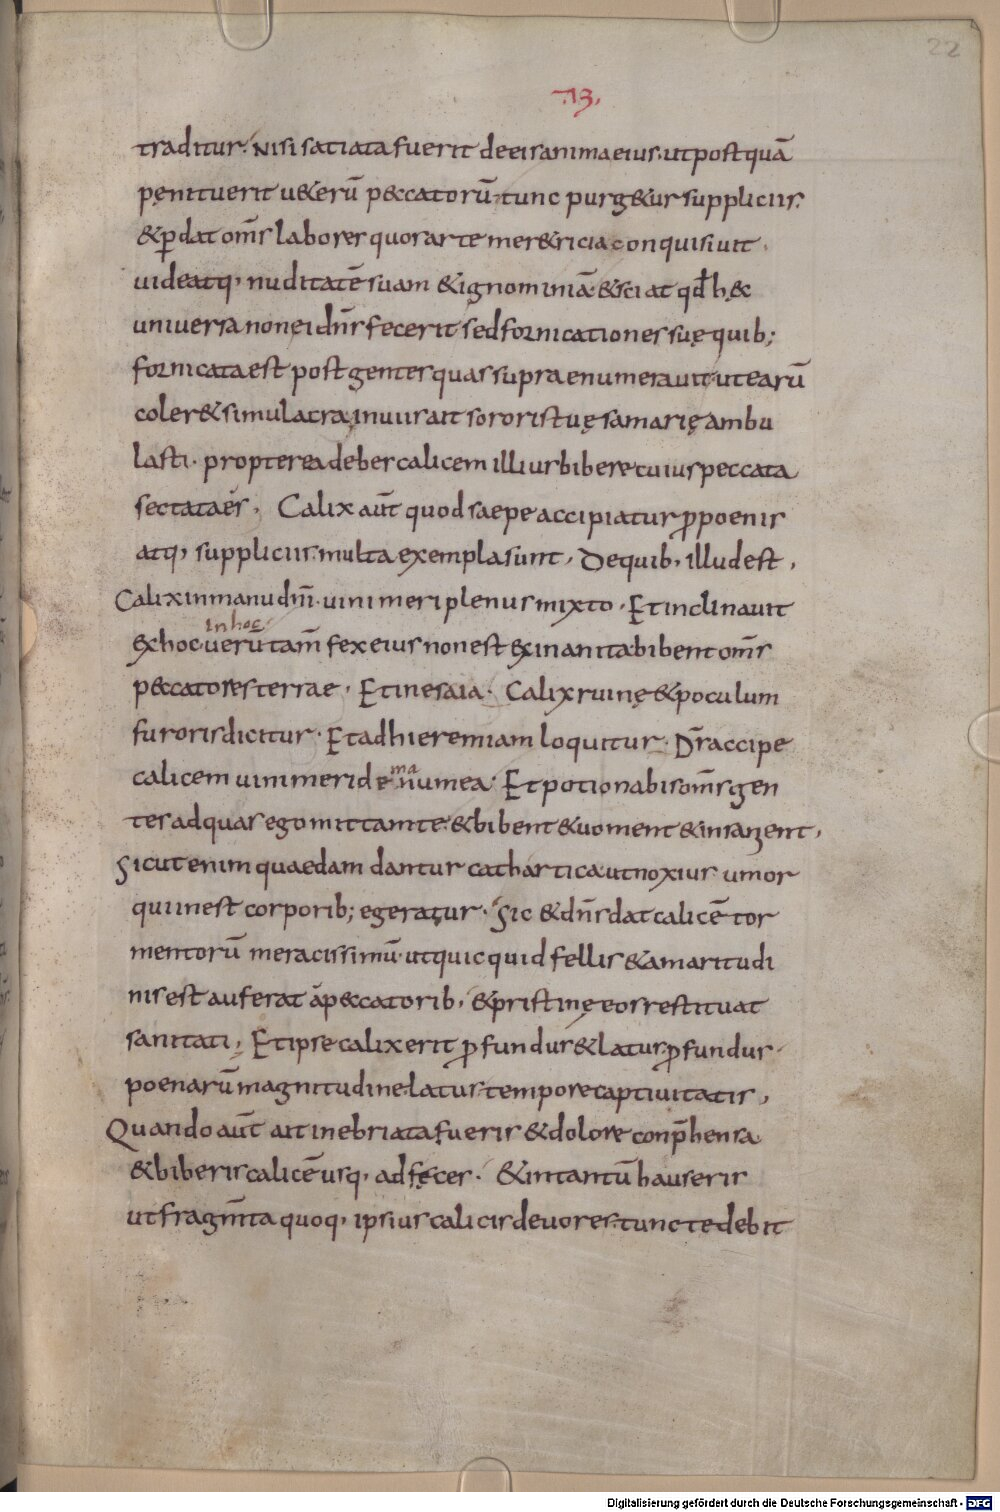 22
.13.
traditur. Nisi satiata fuerit deeis anima eius. ut postquā
pęnituerit u&erū p&catorū. tunc purg&ur suppliciis.
&ꝑdat om̄s labores quos arte mer&ricia conquisiuit.
uideatq, nuditatē suam & ignominiā. & sciat qđ hęc
uniuersa non ei dn̄s fecerit sed fornicationes suę quib;
fornicata est post gentes quas supra enumerauit. ut earū
coler& simulacra, in uiis ait sororis tuę samarię ambu
lasti. propterea debes calicem illius bibere cuius peccata
sectata es. Calix aūt quod saepe accipiatur ꝓ poenis
atq, suppliciis. multa exempla sunt. De quib, illud est.
Calix in manu dn̄i. uini meri plenus mixto. Et inclinauit
in hoc
ex hoc. uerūtam̄ fex eius non est exinanita. bibent om̄s
p&catores terrae. Et in esaia. Calix ruinę & poculum
furoris dicitur. Et ad hieremiam loquitur. Dn̄s accipe
calicem uini meri de ^ma nu mea. Et potionabis om̄s gen
tes ad quas ego mittam te. & bibent & uoment & insanient.
Sicut enim quaedam dantur cathartica ut noxius umor
qui inest corporib; egeratur. Sic & dn̄s dat calicē tor
mentorū meracissimū. ut quicquid fellis & amaritudi
nis est auferat a p&catorib, & pristinę eos restituat
sanitati. Et ipse calix erit ꝓfundus & latus. ꝓfundus
poenarū magnitudine. latus tempore captiuitatis.
Quando aūt ait inebriata fueris & dolore conp̄hensa
& biberis calicē usq, ad fęces. & in tantū hauseris
ut fragm̄ta quoq, ipsius calicis deuores. tunc te debit
Digitalisierung gefördert durch die Deutsche Forschungsgemeinschaft - DFG